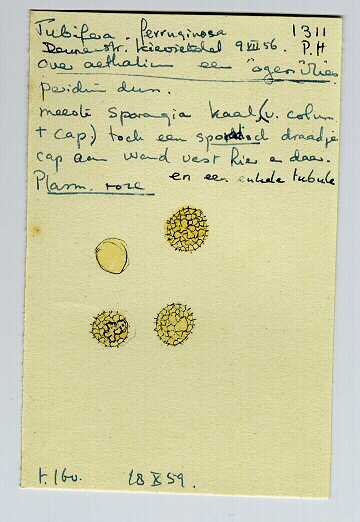 Tubifera ferruginosa 1311
str. Kievietsdal 9 VII 56. P.H
Over aethalium een "eigen" vlies
peridium dun.
meeste sporangia kaal (v. colum
+ cap) toch een sporadisch draadje
cap aan wand vast hier en daar.
Plasm. roze en een enkele tubule
18 X 59.